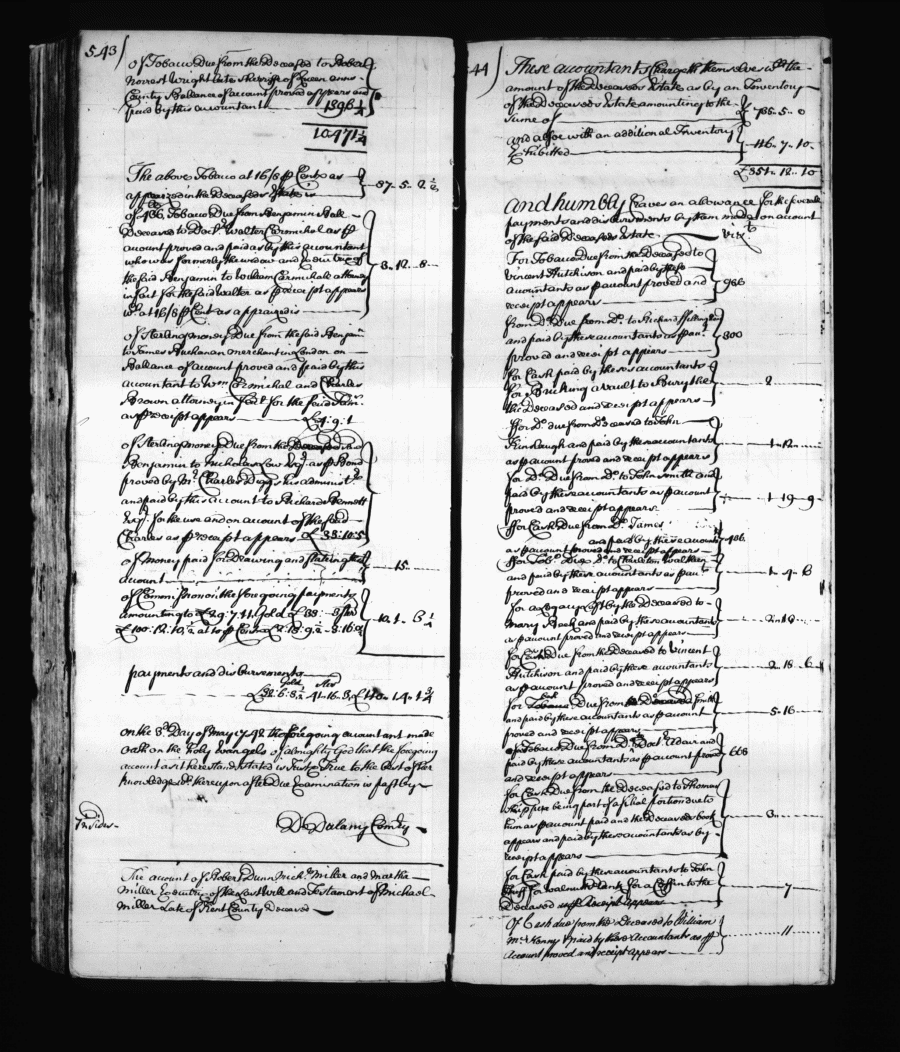 543)
of Tobacco Due from the Deceased to Robert
Norrest Wright Late Sheriff of Queen Anns
County Ballance of account proved appears and
paid by this accountant 1896¼
10471¼
The above Tobacco at 16/8 ₽ Cent as
appraized in the Deceaseds Estate is 87-5-2½
of 436 Tobacco Due from Benjamin Ball
Deceased to Doct.r Walter Carmichal as ₽
account proved and paid as by this accountant
who was formerly the widow and Executrix of
the said Benjamin to William Carmichall attorney
in fact for the said Walter as ₽ receipt appears
at 16/8 ₽ Cent as appraized is 3-12-8
of Sterling money Due from the said Benjamin
to James Buchanan merchant in London on
Ballance of account proved and paid by this
accountant to Wm Carmichal and Charles
Brown attorney in fact for the said
as ₽ receipt appears
of Sterling money Due from the Deceased
Benjamin to Nicholas Esq.r as ₽ Bond
proved by Mr Charles his administ.r
and paid by this account to Richard Bennett
Esq.r for the use and on account of the said
Charles as ₽ receipt appears £ 38:10:5
of money paid for Drawing and stating this
account 15
of Commissions on the foregoing payments
amounting to £29:7:11 Gold £38:
payments and disbursements
Gold Ster
On the 3d Day of May 1742 the foregoing accountant made
oath on the Holy Evangels of almighty God that the foregoing
account as it here stands stated is Just & True to the best of her
knowledge w.ch thereupon after Due Examination is past by
D Dulany Com.ry
The account of Robert Dunn Mich.l Miller and Martha
Miller Executrs of the Last Will and Testament of Michael
Miller Late of Kent County Deceased
44)
These accountants Chargeth themselves w.th the
amount of the Deceaseds Estate as by an Inventory
of the Deceaseds Estate amounting to the
sume of £ 735-5-0
and alsoe with an additional Inventory
Exhibitted 116-7-10
£851-12-10
And humbly Craves an allowance for the severall
payments and disbursements by them made on account
of the said Deceaseds Estate Viz.t
For Tobacco Due from the Deceased to
Vincent Hutchison and paid by these
accountants as ₽ account proved and
receipt appears 966
from D.o Due from D.o to Richard
and paid by these accountants as ₽ acc.t
proved and receipt appears 300
for Cash paid by these accountants
for Bricking a vault to Bury the
the Deceased and receipt appears 2
for D.o due from Deceased to John
Kinbaugh and paid by these accountants
as ₽ account proved and receipt appears 1-12
for D.o Due from D.o to John Smith and
paid by these accountants as ₽ account
proved and receipt appears 1-19-9
for Cash Due from D.o James
and paid by these accounts
as ₽ account proved and receipt appears 406
for Tob.o Due D.o to
and paid by these accountants as ₽ acc.t
proved and receipt appears 1-4-6
for a Legacy Left by the Deceased to
Mary and paid by these accountants
as ₽ account proved and receipt appears
for Cash Due from the Deceased to Vincent
Hutchison and paid by these accountants
as ₽ account proved and receipt appears 2-18-6
for Due from the Deceased Smith
and paid by these accountants as ₽ account
proved and receipt appears 5-16
of Tobacco Due from D.o Doct.r Adair and
paid by these accountants as ₽ account proved
and receipt appears 668
for Cash Due from the Deceased to Thomas
being part of a filial portion due to
him as ₽ account paid and the Deceaseds book
appears and paid by these accountants as by
receipt appears 3
for Cash paid by these accountants to John
for walnut Plank for a Coffin to the
Deceased as ₽ Receipt appears 7
Of Cash due from the Deceased to William
Mc Kenny & paid by these Accountants as ₽
Account proved and receipt appears 11